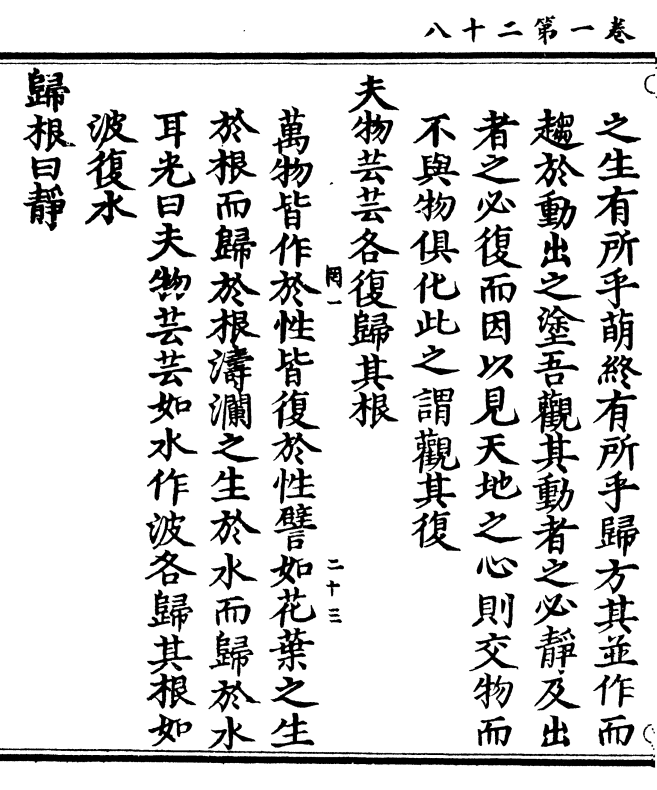 卷一第二十八
之生有所乎萌終有所乎歸方其並作而
趨於動出之塗吾觀其動者之必靜及出
者之必復而因以見天地之心則交物而
不與物俱化此之謂觀其復
夫物芸芸各復歸其根
罔一
二十三
萬物皆作於性皆復於性譬如花葉之生
於根而歸於根濤瀾之生於水而歸於水
耳光曰夫物芸芸如水作波各歸其根如
波復水
歸根曰靜